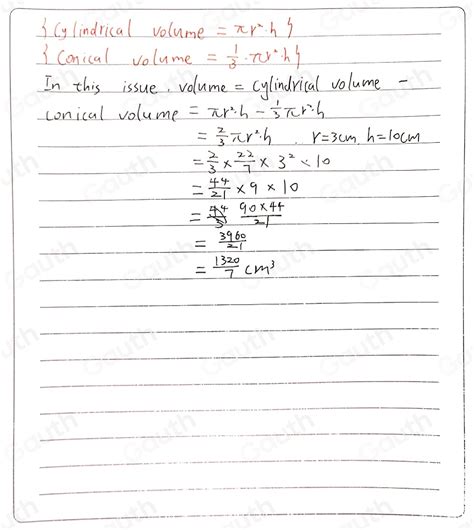 { Cylindrical volume = πr²·h }
{ Conical volume = 1/3·πr²·h }
In this issue, volume = cylindrical volume -
conical volume = πr²·h - 1/3πr²·h
= 2/3πr²·h . r=3cm, h=10cm
= 2/3 × 22/7 × 3² × 10
= 44/21 × 9 × 10
= 90×44/21
= 3960/21
= 1320/7 cm³
Gauth